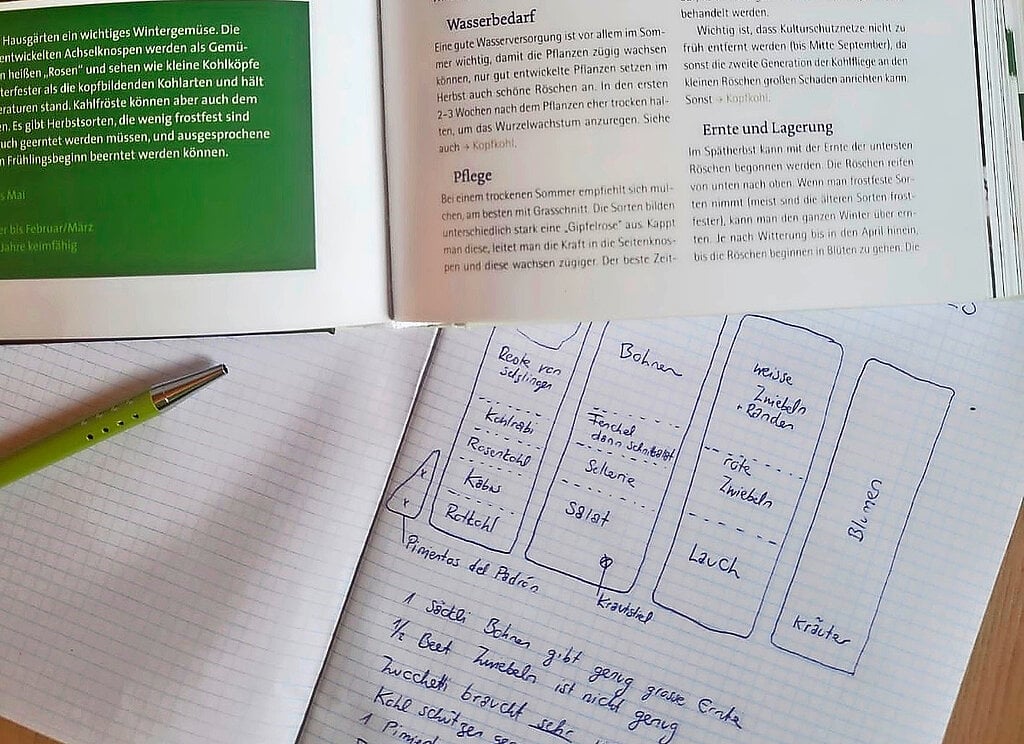 Hausgärten ein wichtiges Wintergemüse. Die
entwickelten Achselknospen werden als Gemü-
n heißen „Rosen“ und sehen wie kleine Kohlköpfe
terfester als die kopfbildenden Kohlarten und hält
eraturen stand. Kahlfröste können aber auch dem
en. Es gibt Herbstsorten, die wenig frostfest sind
uch geerntet werden müssen, und ausgesprochene
n Frühlingsbeginn beerntet werden können.
s Mai
er bis Februar/März
Jahre keimfähig
Wasserbedarf
Eine gute Wasserversorgung ist vor allem im Som-
mer wichtig, damit die Pflanzen zügig wachsen
können, nur gut entwickelte Pflanzen setzen im
Herbst auch schöne Röschen an. In den ersten
2–3 Wochen nach dem Pflanzen eher trocken hal-
ten, um das Wurzelwachstum anzuregen. Siehe
auch → Kopfkohl.
Pflege
Bei einem trockenen Sommer empfiehlt sich mul-
chen, am besten mit Grasschnitt. Die Sorten bilden
unterschiedlich stark eine „Gipfelrose“ aus. Kappt
man diese, leitet man die Kraft in die Seitenknos-
pen und diese wachsen zügiger. Der beste Zeit-
behandelt werden.
Wichtig ist, dass Kulturschutznetze nicht zu
früh entfernt werden (bis Mitte September), da
sonst die zweite Generation der Kohlfliege an den
kleinen Röschen großen Schaden anrichten kann.
Sonst → Kopfkohl.
Ernte und Lagerung
Im Spätherbst kann mit der Ernte der untersten
Röschen begonnen werden. Die Röschen reifen
von unten nach oben. Wenn man frostfeste Sor-
ten nimmt (meist sind die älteren Sorten frost-
fester), kann man den ganzen Winter über ern-
ten. Je nach Witterung bis in den April hinein,
bis die Röschen beginnen in Blüten zu gehen. Die
Reste von
setzlingen
Kohlrabi
Rosenkohl
Kabis
Rotkohl
x
x
Pimientos del Padrón
Bohnen
Fenchel
dann Schnittsalat
Sellerie
Salat
Krautstiel
weisse
Zwiebeln
+ Randen
rote
Zwiebeln
Lauch
Blumen
Kräuter
1 Säckli Bohnen gibt genug grosse Ernte
1/2 Beet Zwiebeln ist nicht genug
Zucchetti braucht sehr
Kohl schützen
1 Pimient